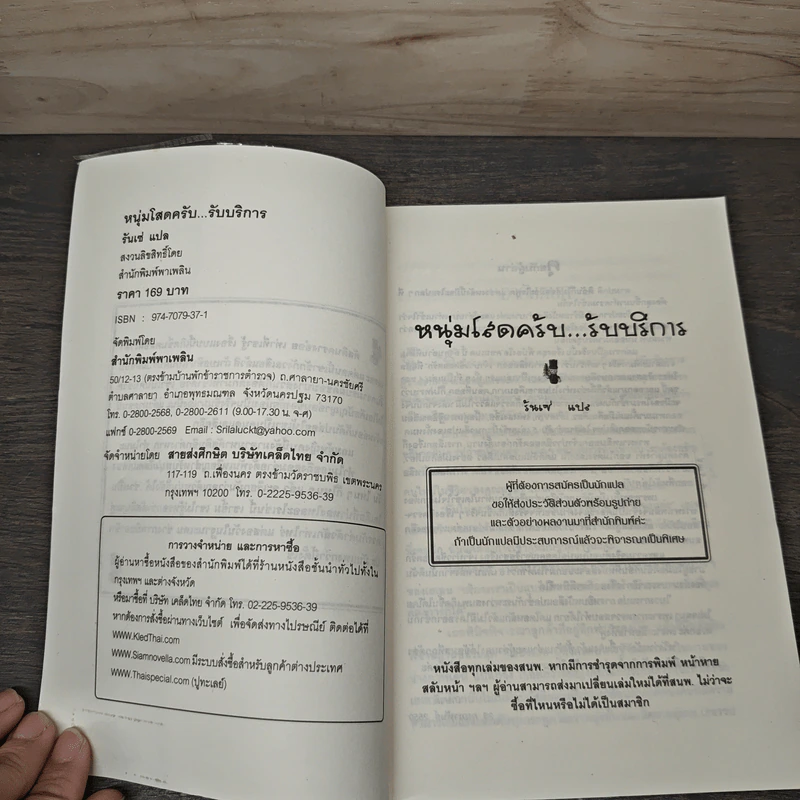 หนุ่มโสดครับ...รับบริการ
รันเซ่ แปล
สงวนลิขสิทธิ์โดย
สำนักพิมพ์พาเพลิน
ราคา 169 บาท
ISBN : 974-7079-37-1
จัดพิมพ์โดย
สำนักพิมพ์พาเพลิน
50/12-13 (ตรงข้ามบ้านพักข้าราชการตำรวจ) ถ.ศาลายา-นครชัยศรี
ตำบลศาลายา อำเภอพุทธมณฑล จังหวัดนครปฐม 73170
โทร. 0-2800-2568, 0-2800-2611 (9.00-17.30 น. จ-ศ)
แฟกซ์ 0-2800-2569 Email : Srilaluckt@yahoo.com
จัดจำหน่ายโดย สายส่งศึกษิต บริษัทเคล็ดไทย จำกัด
117-119 ถ.เฟื่องนคร ตรงข้ามวัดราชบพิธ เขตพระนคร
กรุงเทพฯ 10200 โทร. 0-2225-9536-39
การวางจำหน่าย และการหาซื้อ
ผู้อ่านหาซื้อหนังสือของสำนักพิมพ์ได้ที่ร้านหนังสือชั้นนำทั่วไปทั้งใน
กรุงเทพฯ และต่างจังหวัด
หรือมาซื้อที่ บริษัท เคล็ดไทย จำกัด โทร. 02-225-9536-39
หากต้องการสั่งซื้อผ่านทางเว็บไซต์ เพื่อจัดส่งทางไปรษณีย์ ติดต่อได้ที่
WWW.KledThai.com
WWW.Siamnovella.com มีระบบสั่งซื้อสำหรับลูกค้าต่างประเทศ
WWW.Thaispecial.com (ปูทะเลย์)
หนุ่มโสดครับ...รับบริการ
รันเซ่ แปล
ผู้ที่ต้องการสมัครเป็นนักแปล
ขอให้ส่งประวัติส่วนตัวพร้อมรูปถ่าย
และตัวอย่างผลงานมาที่สำนักพิมพ์ค่ะ
ถ้าเป็นนักแปลมีประสบการณ์แล้วจะพิจารณาเป็นพิเศษ
หนังสือทุกเล่มของสนพ. หากมีการชำรุดจากการพิมพ์ หน้าหาย
สลับหน้า ฯลฯ ผู้อ่านสามารถส่งมาเปลี่ยนเล่มใหม่ได้ที่สนพ. ไม่ว่าจะ
ซื้อที่ไหนหรือไม่ได้เป็นสมาชิก